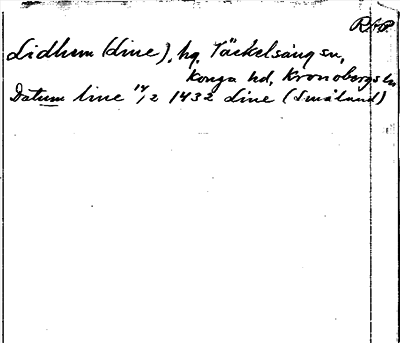 RAP
Lidhem (Line), hg, Täckelsång sn,
Konga hd, Kronobergs län
Datum Line 14/2 1432 Line (Småland)